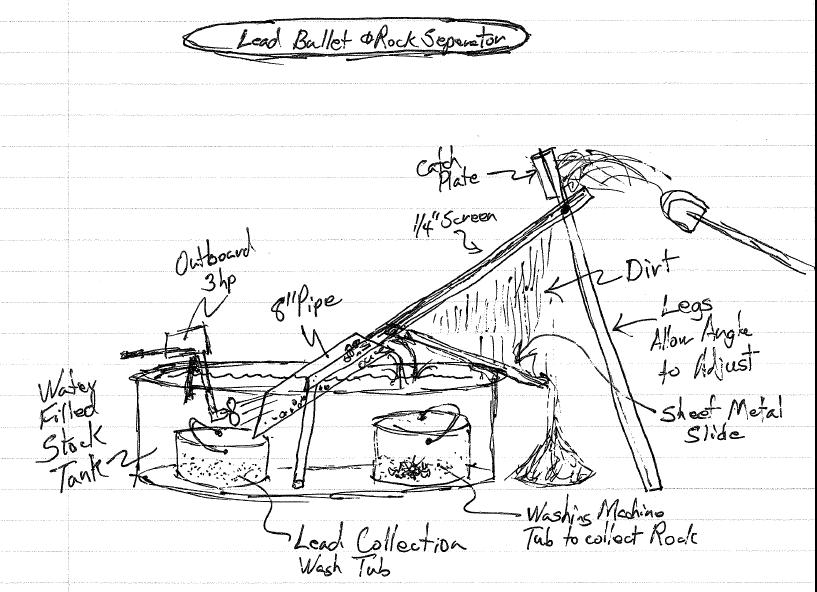 Lead Bullet & Rock Seperator
Catch
Plate
1/4" Screen
Outboard
3hp
8" Pipe
Dirt
Legs
Allow Angle
to Adjust
Water
Filled
Stock
Tank
Sheet Metal
Slide
Washing Machine
Tub to collect Rock
Lead Collection
Wash Tub